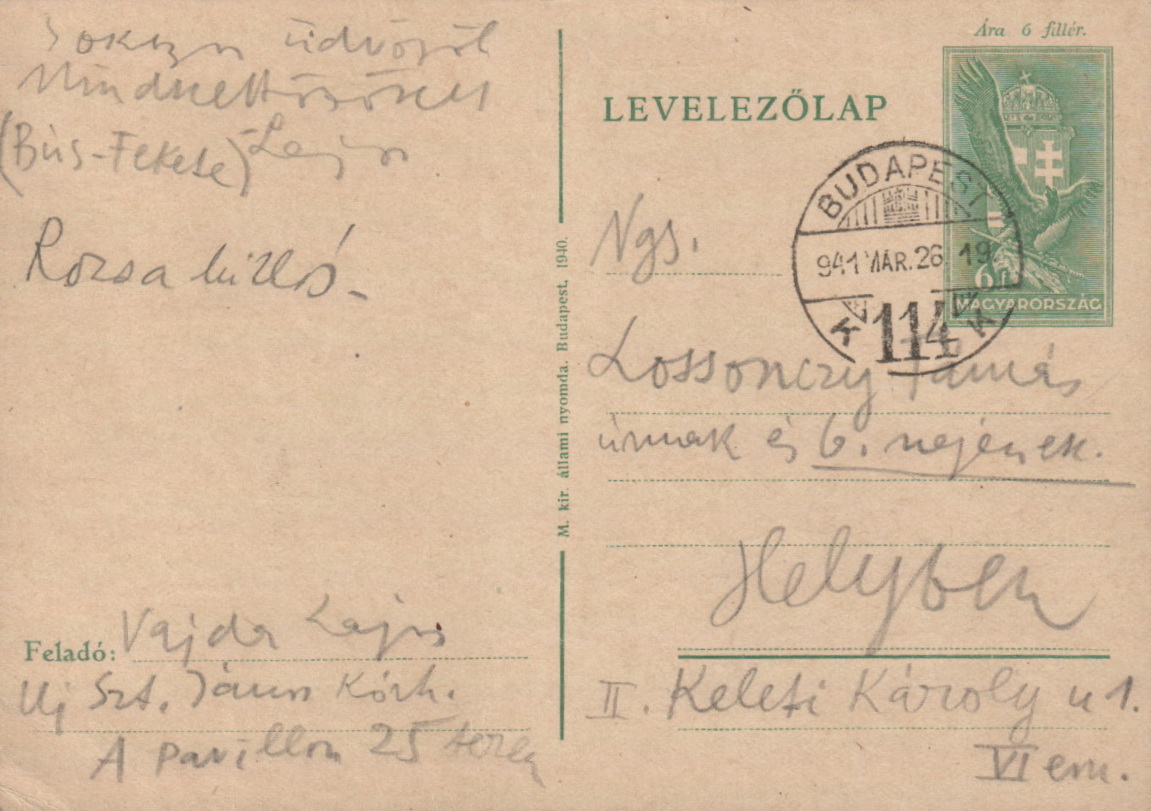 Sokszor üdvözöl
Mindnettőzőtöket
(Bús-Fekete) Lajos
Rozsa
Feladó: Vajda Lajos
Uj Szt. János Kórh.
A pavillon 25 terem
M. kir. állami nyomda. Budapest, 1940.
Ára 6 fillér.
LEVELEZŐLAP
6f
MAGYARORSZÁG
BUDAPEST
941 MÁR. 26 19
K 114 K
Ngs.
Lossonczy Tamás
úrnak és b. nejének.
Helyben
II. Keleti Károly u 1.
VI em.